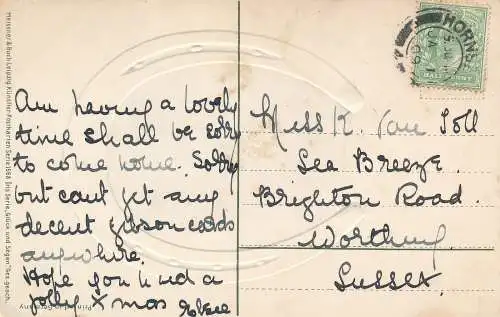 Meissner & Buch Leipzig Künstler-Postkarten Serie 1968
Dis Serie "Glück und Segen" Ges. gesch.
Am having a lovely
time shall be sorry
to come home. Sorry
but cant get any
decent Gibson cards
anywhere.
Hope you had a
jolly Xmas
Printed in Germany
HORNS
HALF PENNY
Miss K. Van Toll
Sea Breeze.
Brighton Road.
Worthing.
Sussex.